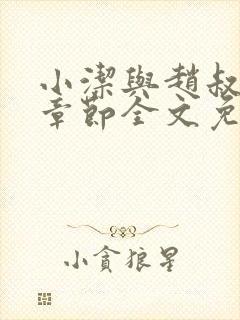 小潔與趙叔
章節全文免
小貪狼星